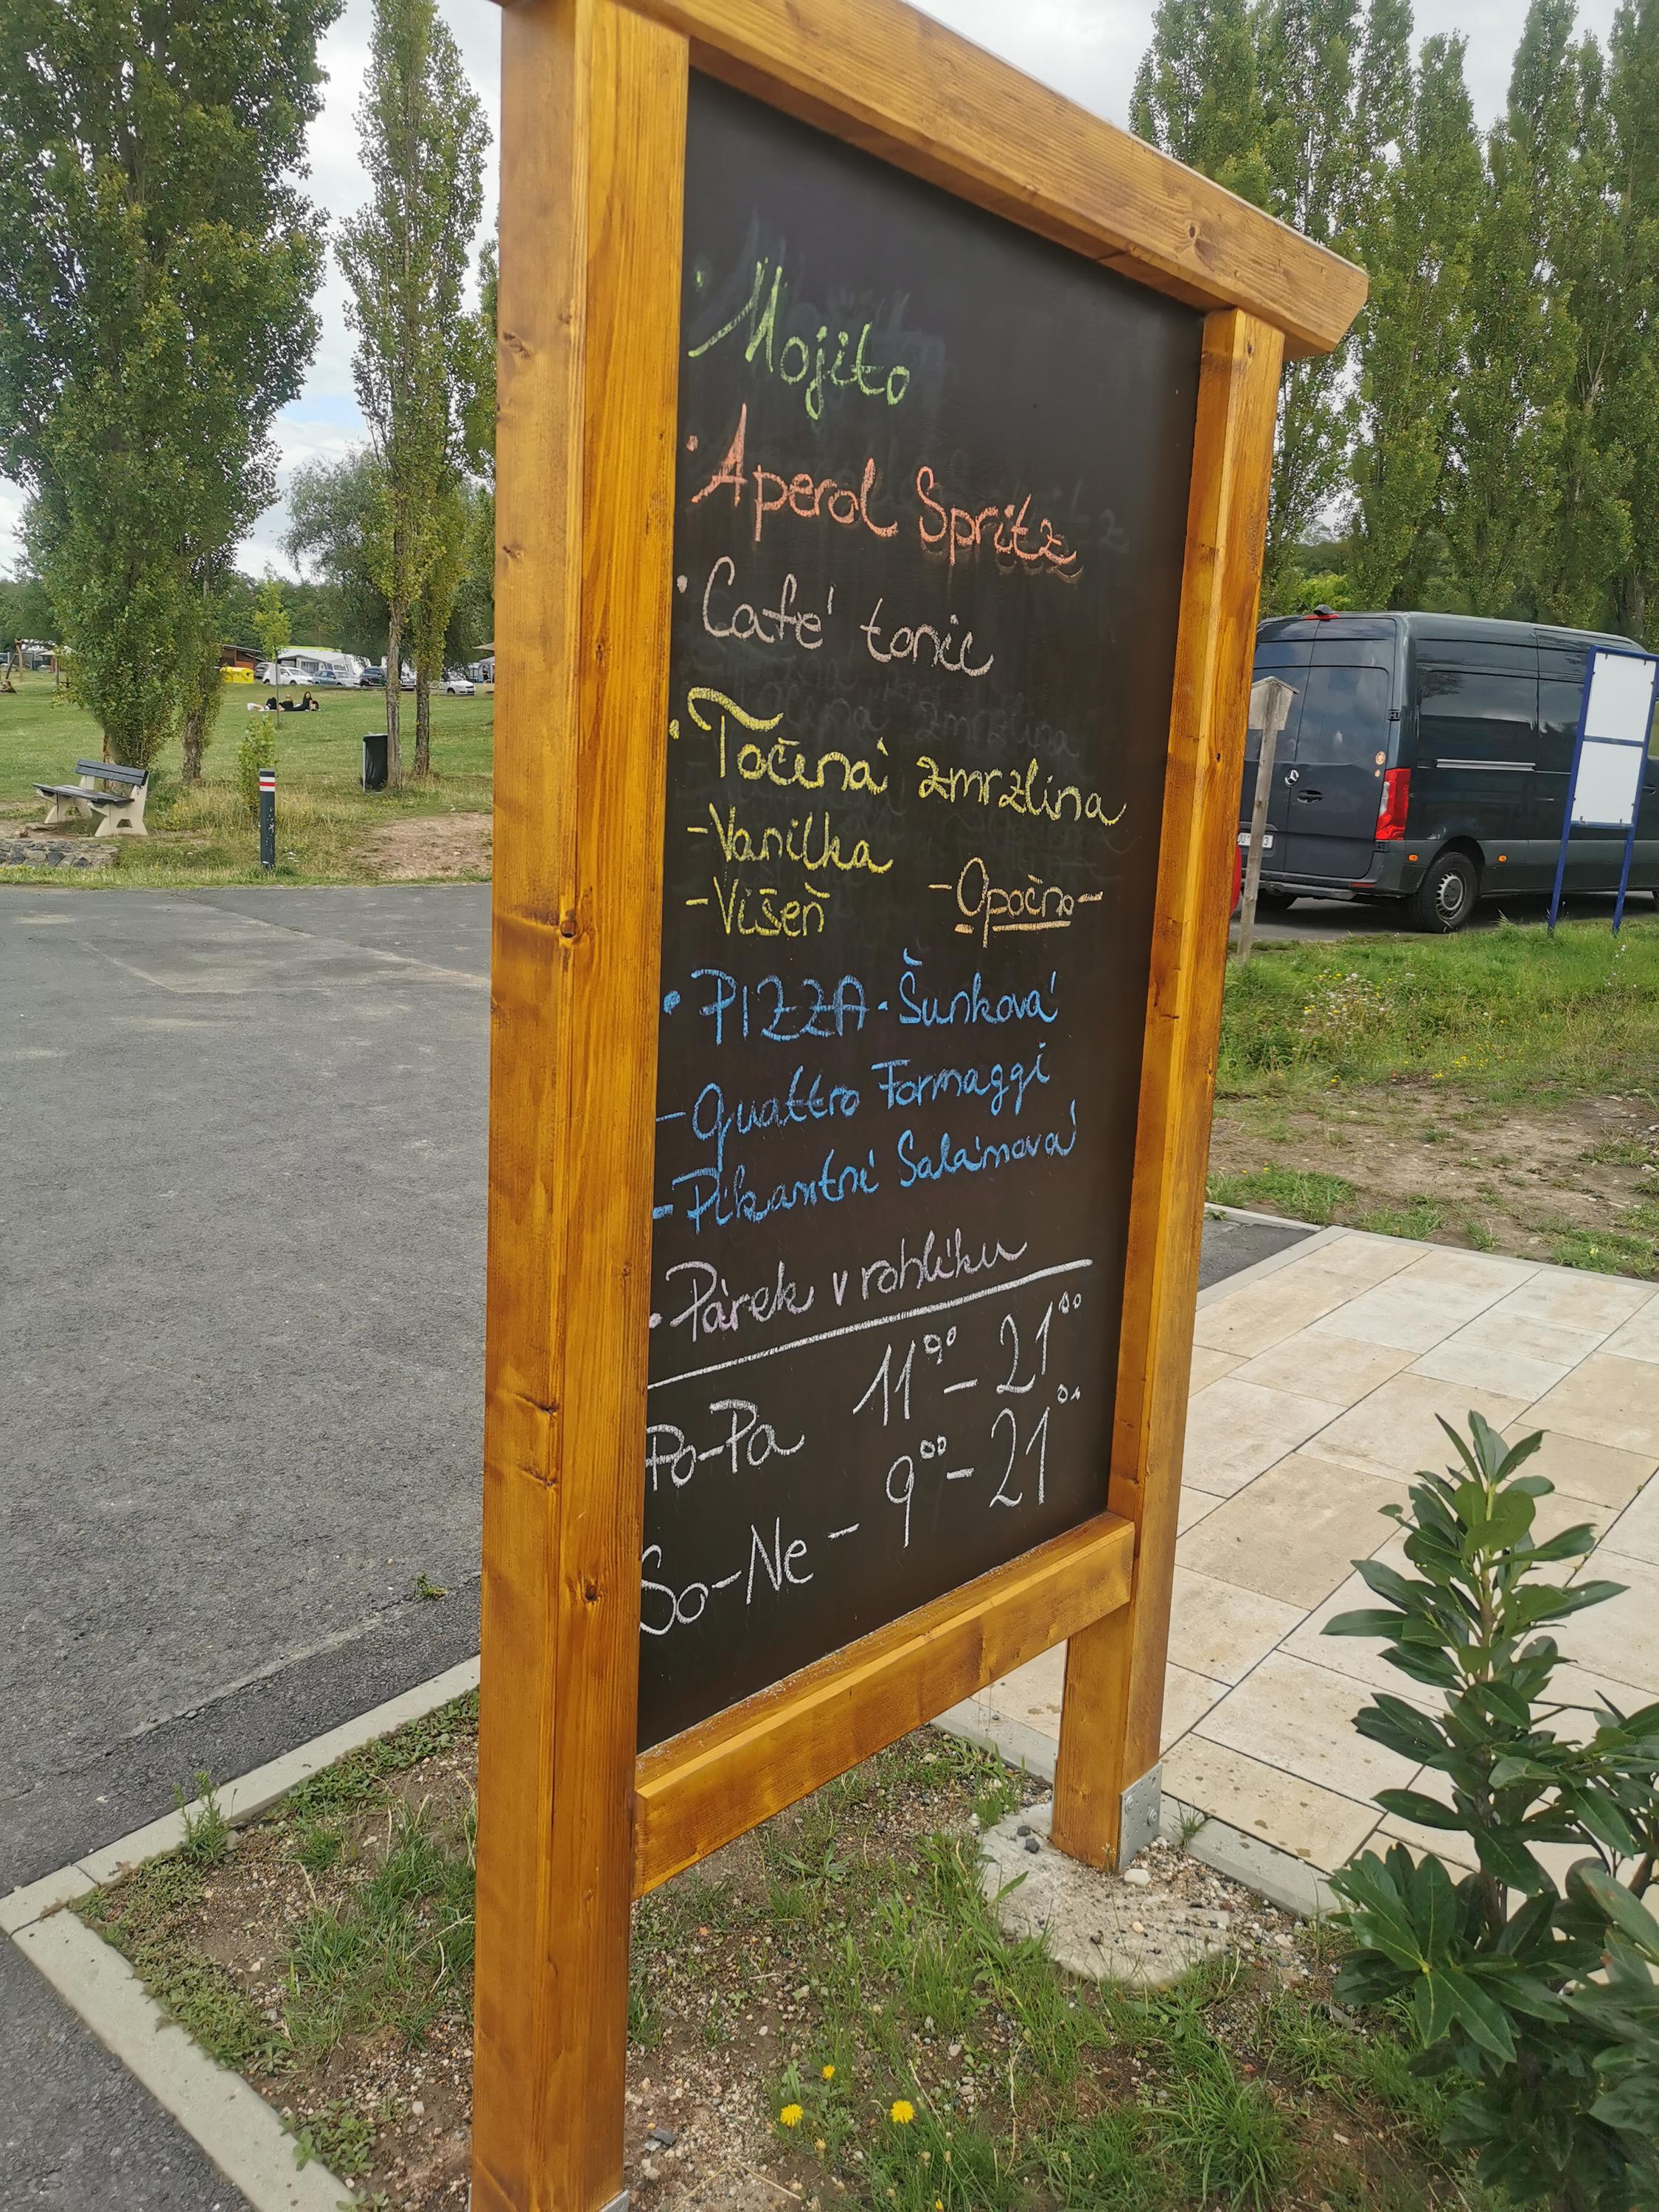 • Mojito
• Aperol Spritz
• Café tonic
• Točená zmrzlina
- Vanilka
- Višeň -Opočno-
• PIZZA - Šunková
- Quattro Formaggi
- Pikantní Salámová
• Párek v rohlíku
Po-Pa 11⁰⁰ - 21⁰⁰
So-Ne - 9⁰⁰ - 21⁰⁰